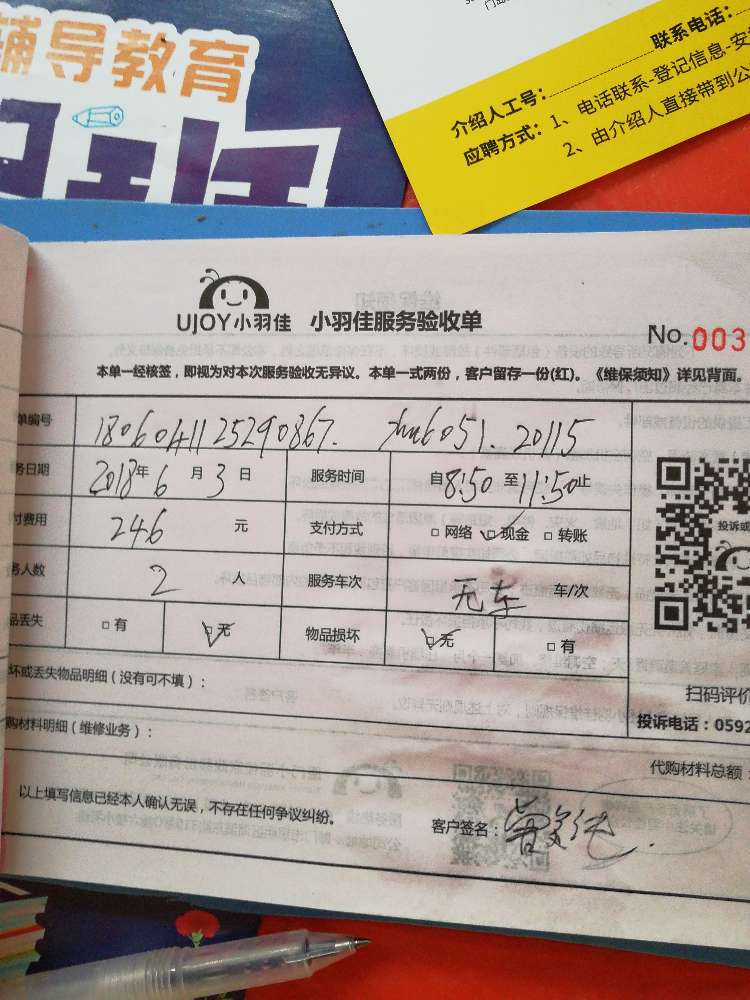 辅导教育
联系电话:
介绍人工号:
应聘方式: 1、电话联系-登记信息-安
2、由介绍人直接带到公
UJOY小羽佳 小羽佳服务验收单
No. 003
本单一经核签，即视为对本次服务验收无异议。本单一式两份，客户留存一份(红)。《维保须知》详见背面。
单编号 1806041125290867.
务日期 2018年6月3日 服务时间 自8:50至11:50止
付费用 246 元 支付方式 □网络 □现金 □转账
务人数 2 人 服务车次 无车 车/次
品丢失 □有 □无 物品损坏 □无 □有
投诉或
扫码评价
投诉电话：0592
坏或丢失物品明细（没有可不填）：
购材料明细（维修业务）：
代购材料总额：
以上填写信息已经本人确认无误，不存在任何争议纠纷。
客户签名：